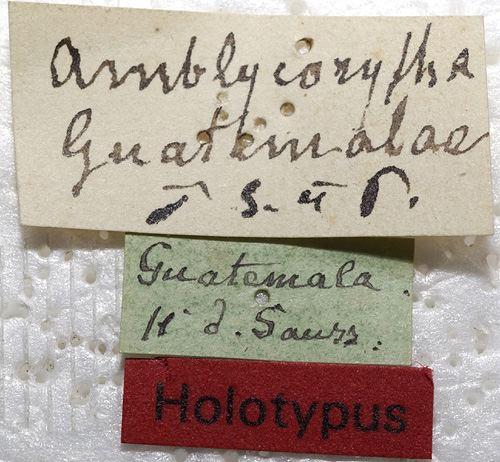 Amblycorypha
Guatemalae
S. u P.
Guatemala.
H. d. Sauss.
Holotypus